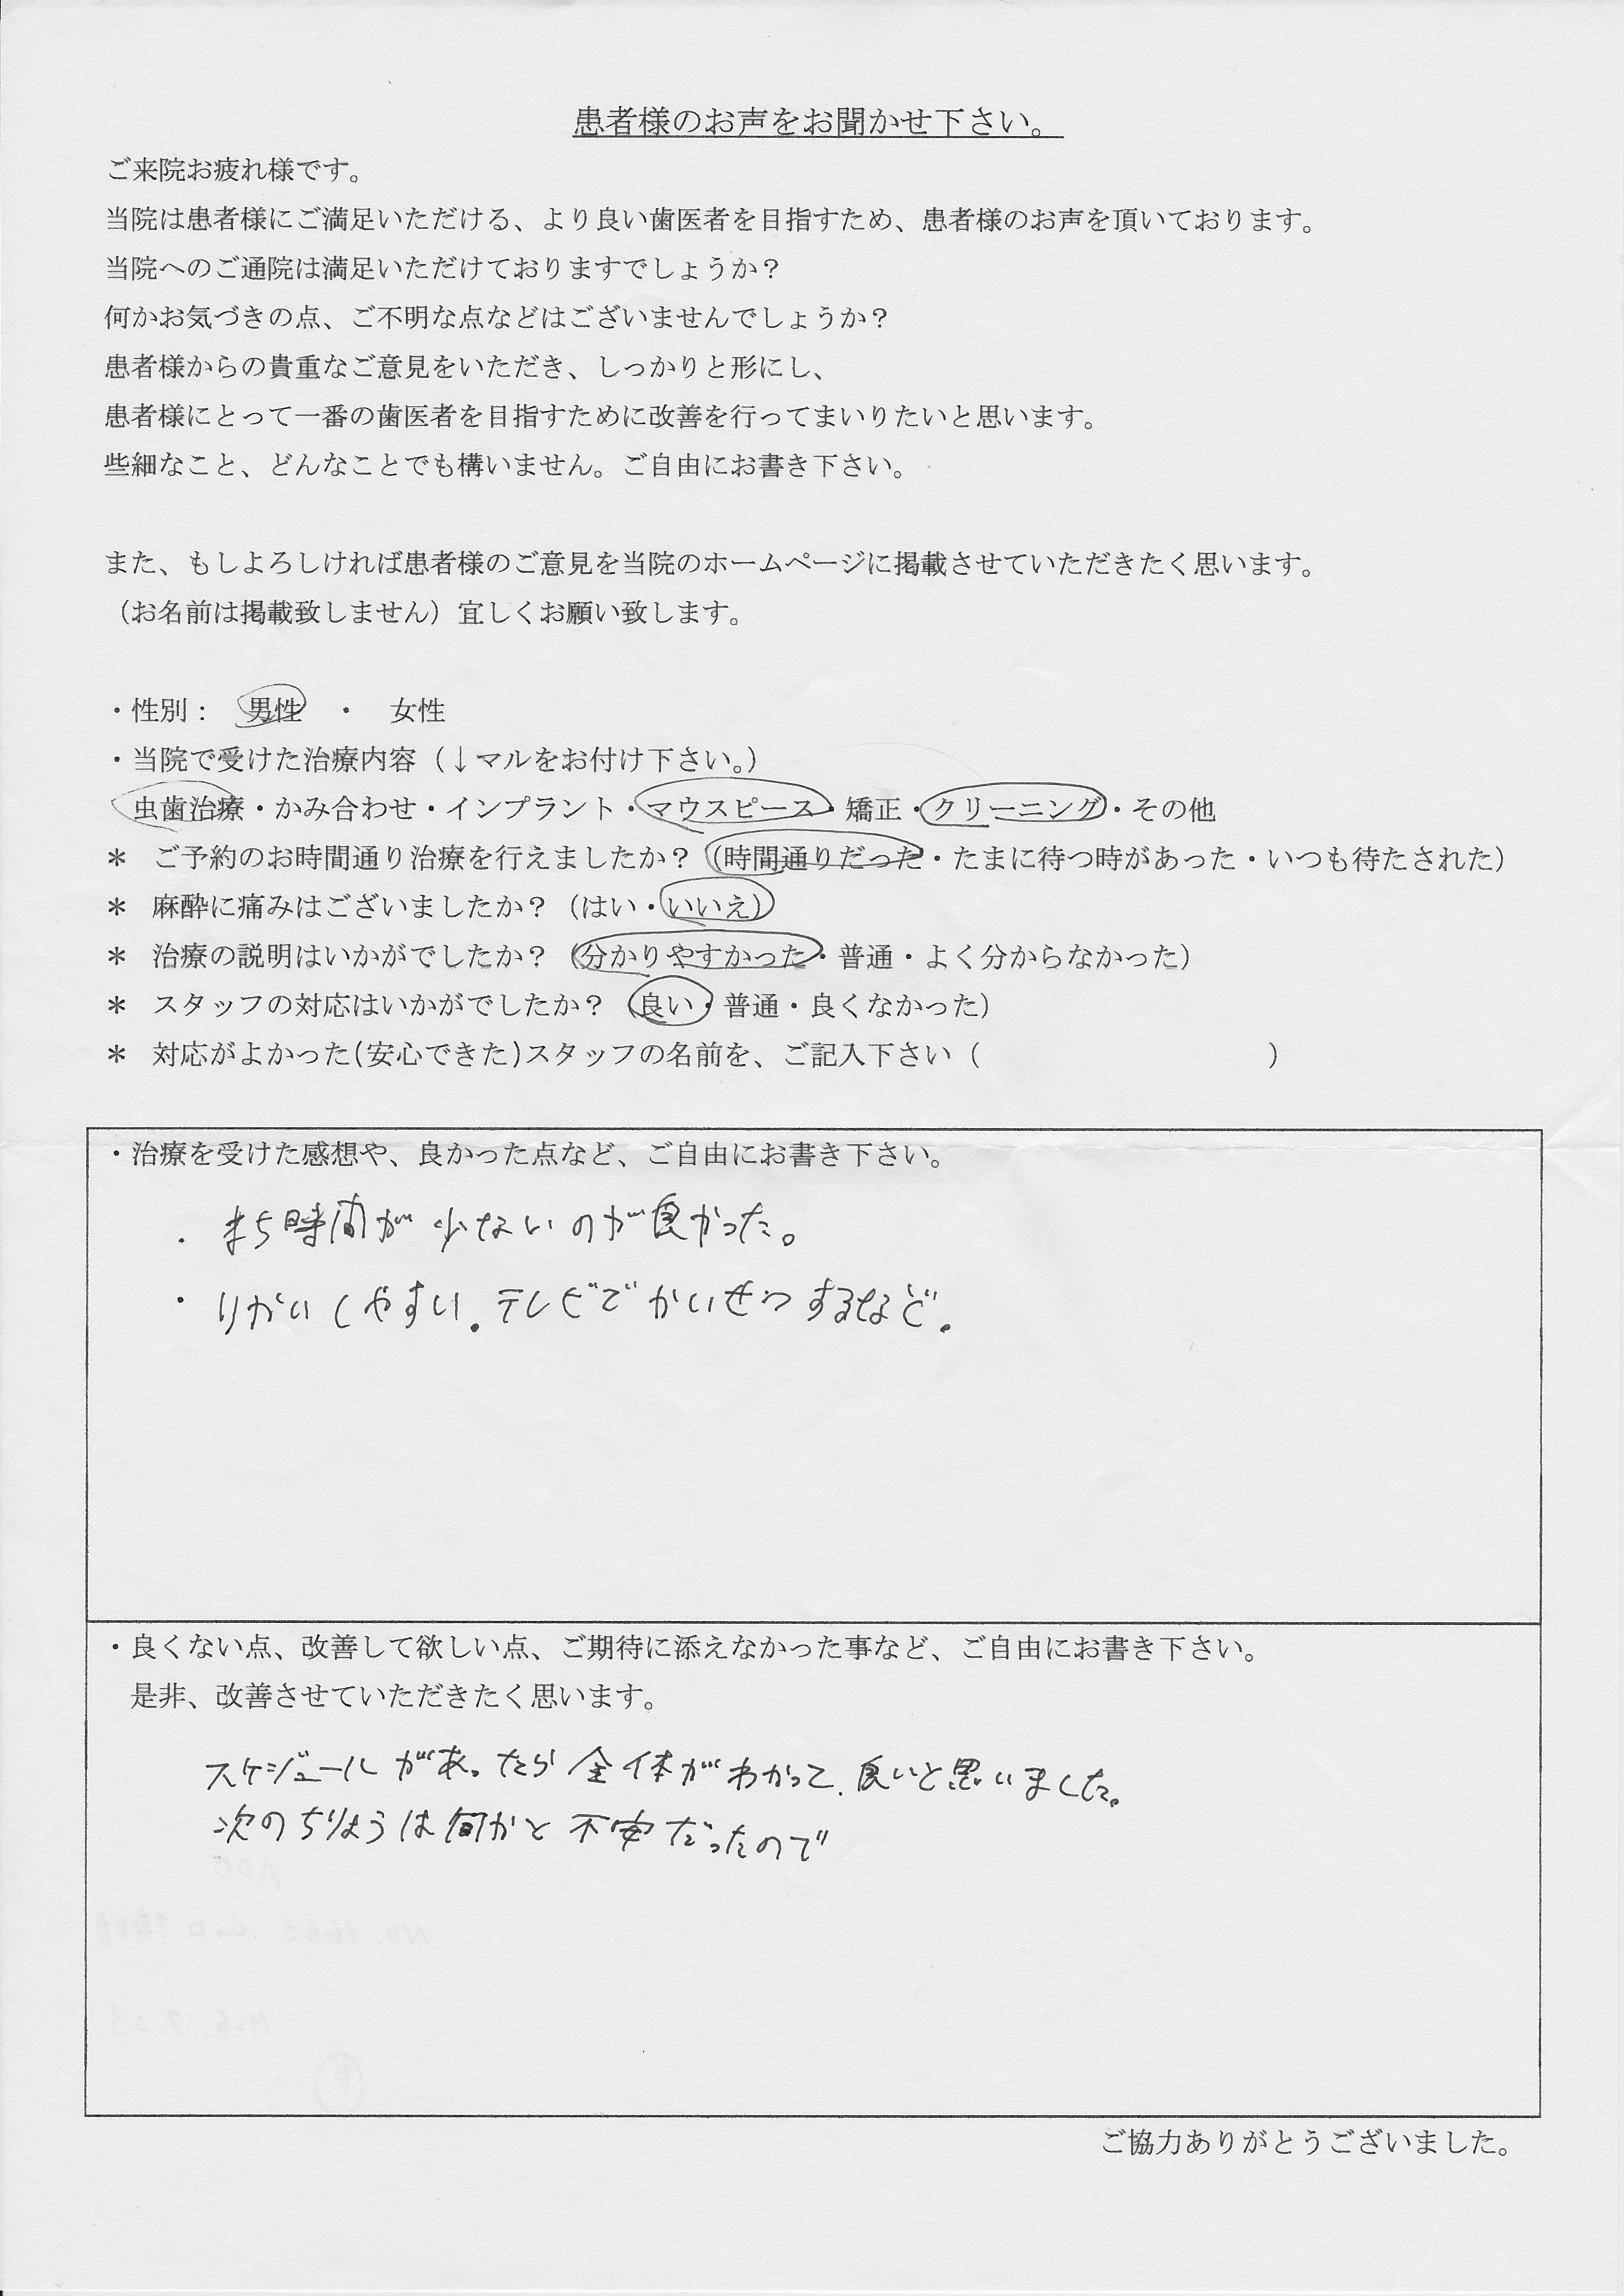 患者様のお声をお聞かせ下さい。
ご来院お疲れ様です。
当院は患者様にご満足いただける、より良い歯医者を目指すため、患者様のお声を頂いております。
当院へのご通院は満足いただけておりますでしょうか？
何かお気づきの点、ご不明な点などはございませんでしょうか？
患者様からの貴重なご意見をいただき、しっかりと形にし、
患者様にとって一番の歯医者を目指すために改善を行ってまいりたいと思います。
些細なこと、どんなことでも構いません。ご自由にお書き下さい。
また、もしよろしければ患者様のご意見を当院のホームページに掲載させていただきたく思います。
（お名前は掲載致しません）宜しくお願い致します。
・性別： 男性 ・ 女性
・当院で受けた治療内容（↓マルをお付け下さい。）
虫歯治療・かみ合わせ・インプラント・マウスピース・矯正・クリーニング・その他
＊ ご予約のお時間通り治療を行えましたか？（時間通りだった・たまに待つ時があった・いつも待たされた）
＊ 麻酔に痛みはございましたか？（はい・いいえ）
＊ 治療の説明はいかがでしたか？（分かりやすかった・普通・よく分からなかった）
＊ スタッフの対応はいかがでしたか？（良い・普通・良くなかった）
＊ 対応がよかった(安心できた)スタッフの名前を、ご記入下さい（ ）
・治療を受けた感想や、良かった点など、ご自由にお書き下さい。
・まち時間が少ないのが良かった。
・りかいしやすい。テレビでかいせつするなど。
・良くない点、改善して欲しい点、ご期待に添えなかった事など、ご自由にお書き下さい。
是非、改善させていただきたく思います。
スケジュールがあったら全体がわかって、良いと思いました。
次のちりょうは何かと不安だったので
ご協力ありがとうございました。